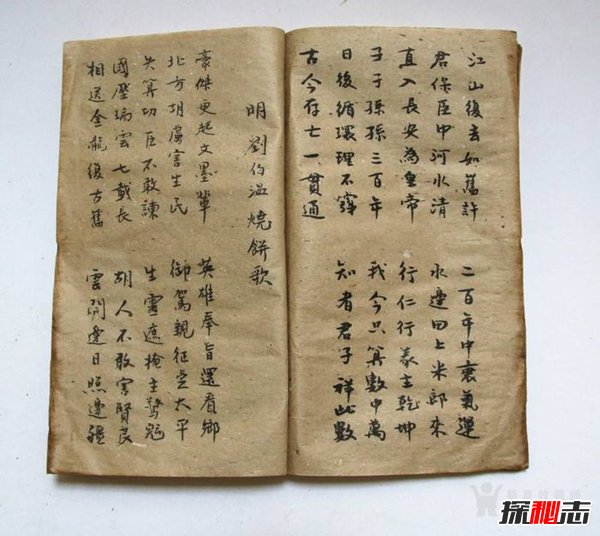 江山復去如舊許 二百年中衰氣運
君保臣中河水清 水邊田上米郎來
直入長安為皇帝 行仁行義主乾坤
子子孫孫三百年 我今只算數中萬
日後循環理不窮 知者君子祥此數
古今存亡一貫通
明 劉伯溫燒餅歌
豪傑更起文墨輩 英雄奉旨還看鄉
北方胡虜害生民 御駕親征定太平
失算功臣不敢諫 生靈遮掩主驚魂
國壓瑞雲七載長 胡人不敢害賢良
相送金龍復古舊 雲開邊日照邊疆
探秘志